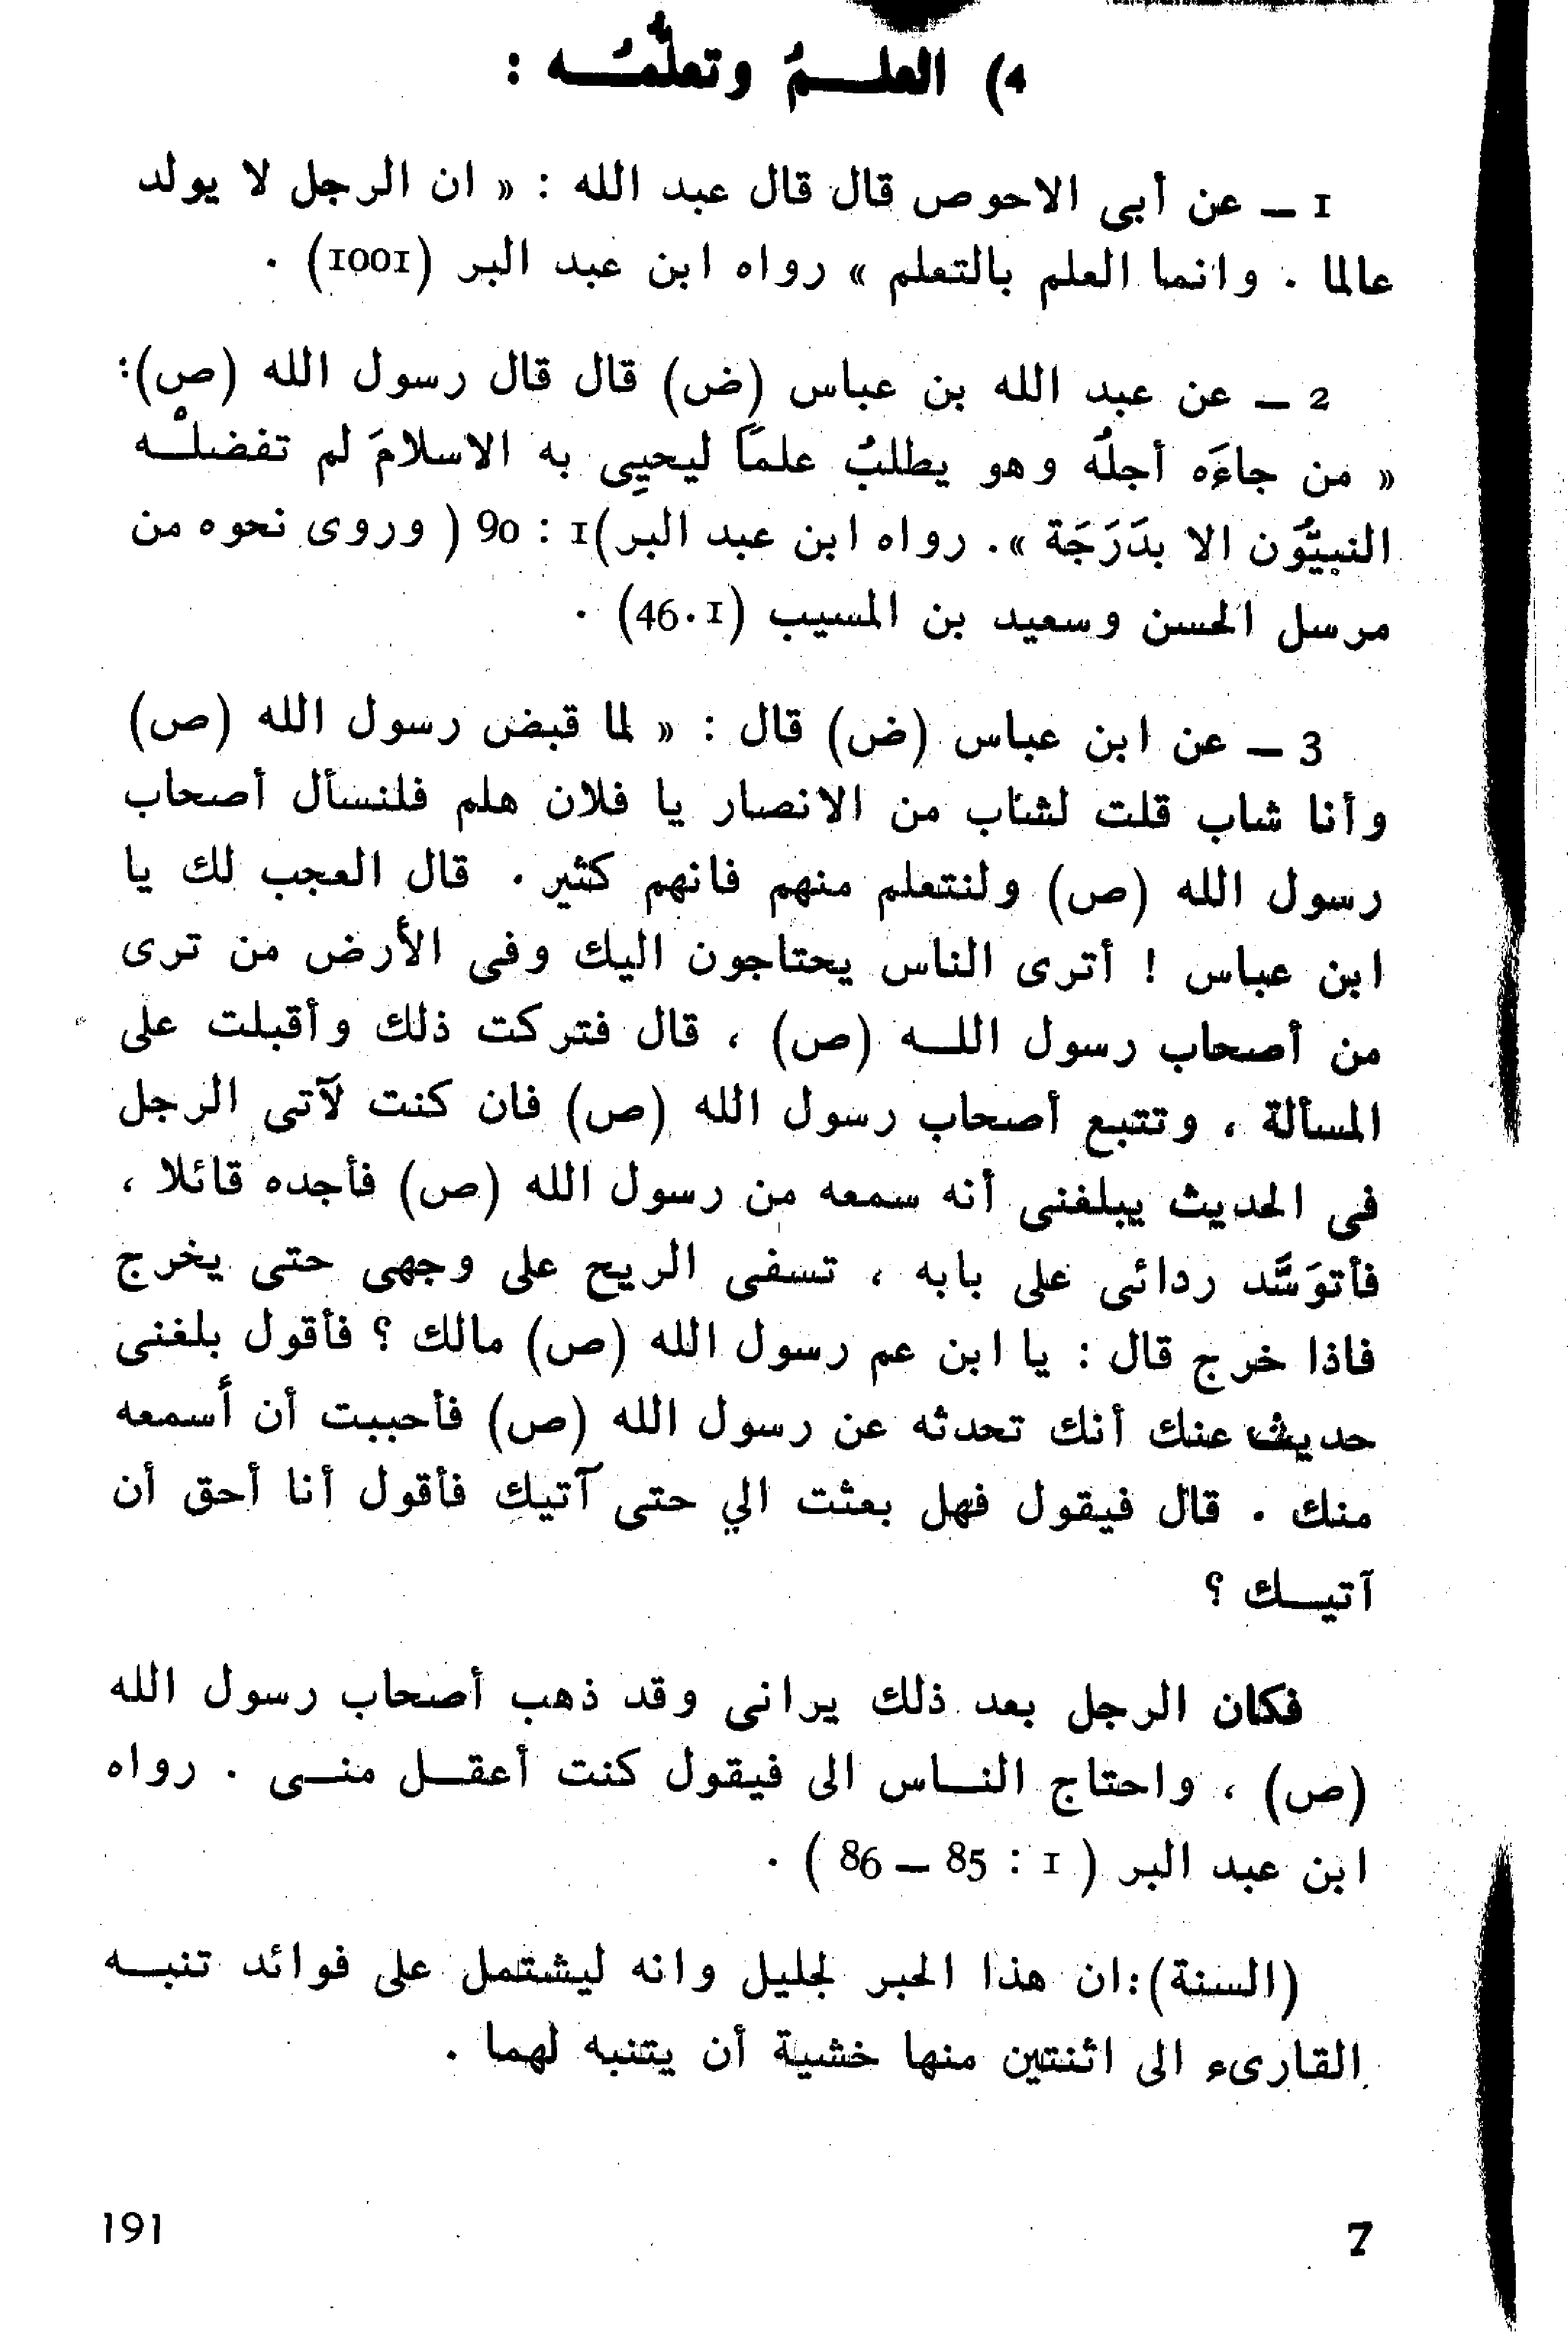 4) العلـــمُ وتعلُّمُـــه :
1 — عن أبى الاحوص قال قال عبد الله : « ان الرجل لا يولد
عالما . وانما العلم بالتعلم » رواه ابن عبد البر (1001) .
2 — عن عبد الله بن عباس (ض) قال قال رسول الله (ص):
« من جاءَه أجلُه وهو يطلبُ علمًا ليحيِى به الاسلامَ لم تفضلْـه
النبيُّون الا بدَرَجَة ». رواه ابن عبد البر)1 : 90 ( وروى نحوه من
مرسل الحسن وسعيد بن المسيب (1.46) .
3 — عن ابن عباس (ض) قال : « لما قبض رسول الله (ص)
وأنا شاب قلت لشاب من الانصار يا فلان هلم فلنسأل أصحاب
رسول الله (ص) ولنتعلم منهم فانهم كثير . قال العجب لك يا
ابن عباس ! أترى الناس يحتاجون اليك وفى الأرض من ترى
من أصحاب رسول اللــه (ص) ، قال فتركت ذلك وأقبلت على
المسألة ، وتتبع أصحاب رسول الله (ص) فان كنت لآتى الرجل
فى الحديث يبلغنى أنه سمعه من رسول الله (ص) فأجده قائلا ،
فأتوَسَّد ردائى على بابه ، تسفى الريح على وجهى حتى يخرج
فاذا خرج قال : يا ابن عم رسول الله (ص) مالك ؟ فأقول بلغنى
حديث عنك أنك تحدثه عن رسول الله (ص) فأحببت أن أسمعه
منك . قال فيقول فهل بعثت الي حتى آتيك فأقول أنا أحق أن
آتيــك ؟
فكان الرجل بعد ذلك يرانى وقد ذهب أصحاب رسول الله
(ص) ، واحتاج النــاس الى فيقول كنت أعقــل منــى . رواه
ابن عبد البر ( 1 : 85 — 86 ) .
(السنة):ان هذا الخبر لجليل وانه ليشتمل على فوائد تنبــه
القارىء الى اثنتين منها خشية أن يتنبه لهما .
7
191